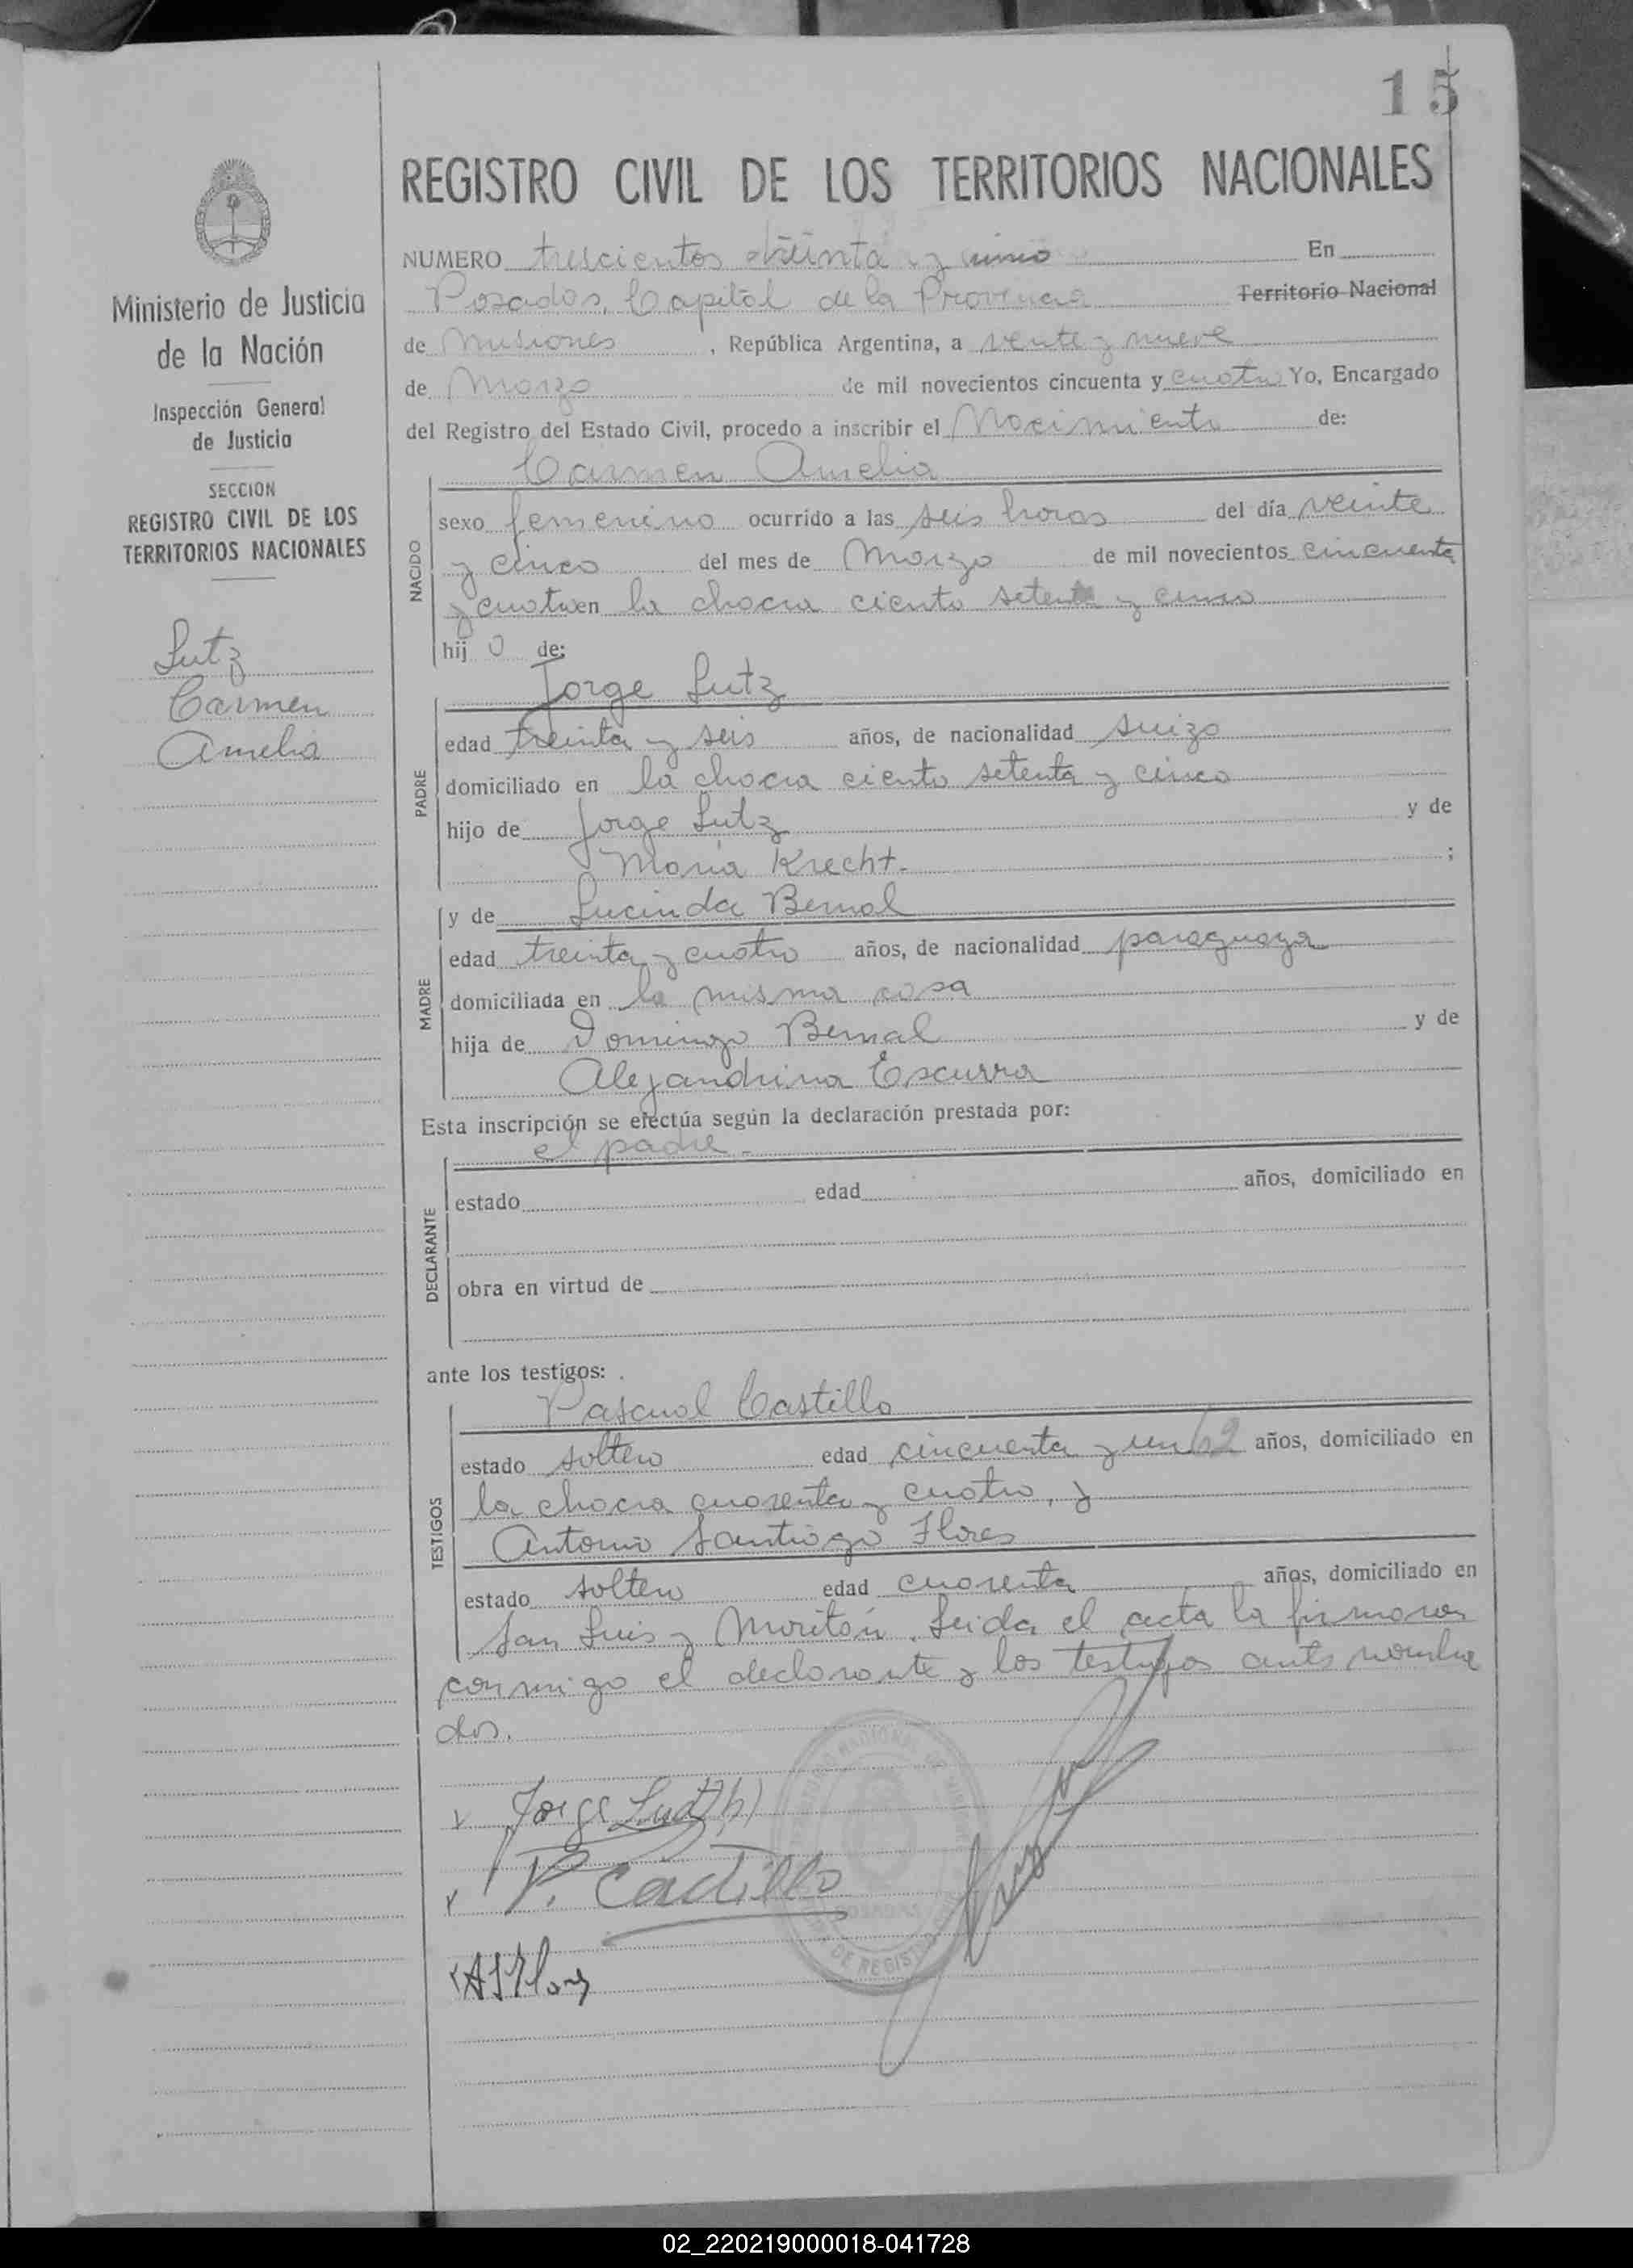 15
REGISTRO CIVIL DE LOS TERRITORIOS NACIONALES
Ministerio de Justicia
de la Nación
Inspección General
de Justicia
SECCION
REGISTRO CIVIL DE LOS
TERRITORIOS NACIONALES
Lutz
Carmen
Amelia
NUMERO trescientos treinta y En
Posadas, Capital de la Provincia Territorio Nacional
de Misiones , República Argentina, a veinte y nueve
de Marzo de mil novecientos cincuenta y cuatro Yo, Encargado
del Registro del Estado Civil, procedo a inscribir el Nacimiento de:
Carmen Amelia
NACIDO
sexo femenino ocurrido a las seis horas del día veinte
y cinco del mes de Marzo de mil novecientos cincuenta
y cuatro en la chacra ciento setenta y cinco
hij a de:
Jorge Lutz
PADRE
edad treinta y seis años, de nacionalidad suizo
domiciliado en la chacra ciento setenta y cinco
hijo de Jorge Lutz y de
Maria Krecht. ;
MADRE
y de Lucinda Bernal
edad treinta y cuatro años, de nacionalidad paraguaya
domiciliada en la misma casa
hija de Domingo Bernal y de
Alejandrina Escurra
Esta inscripción se efectúa según la declaración prestada por:
el padre.-
DECLARANTE
estado edad años, domiciliado en
obra en virtud de
ante los testigos:
Pascual Castillo
TESTIGOS
estado soltero edad cincuenta y un años, domiciliado en
la chacra cuarenta y cuatro, y
Antonio Santiago Flores
estado soltero edad cuarenta años, domiciliado en
San Luis y Moritán. Leida el acta la firmaron
conmigo el declarante y los testigos ante nombra
dos.
Jorge Lutz (h)
P. Castillo
ASFlores
POSADAS
DE REGIST
02_220219000018-041728